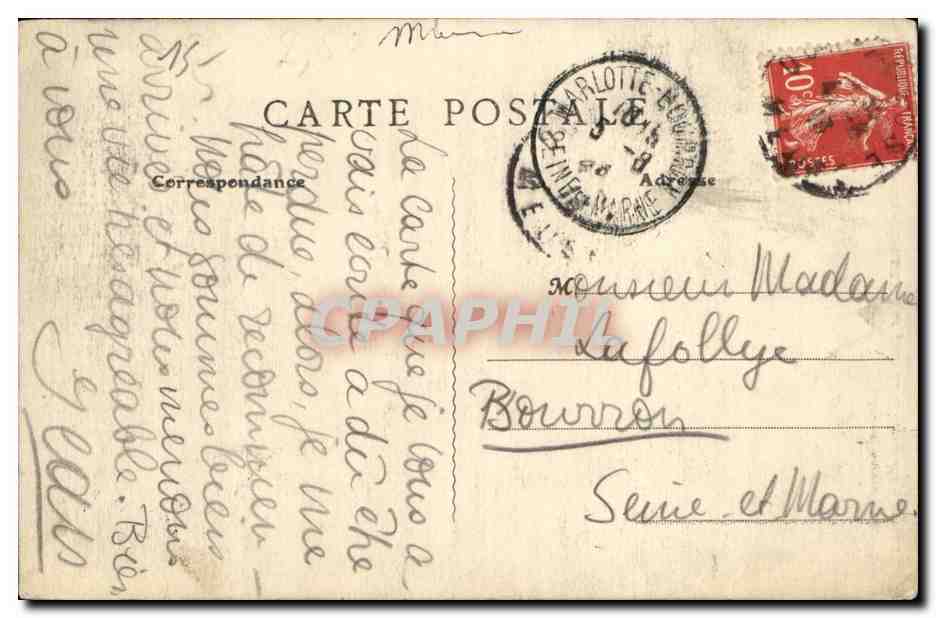 CARTE POSTALE
Correspondance
Adresse
La carte que je vous a
vais écrite a dû être
perdue, alors, je me
hâte de recommen-
cer. Nous sommes bien
arrivés et nous menons
une vie très agréable. Bien
à vous
Monsieur Madame
Lafollye
Bourron
Seine et Marne
MARLOTTE-BOURRON
SEINE-ET-MARNE
REPUBLIQUE FRANÇAISE
10c
POSTES
CPAPHIL